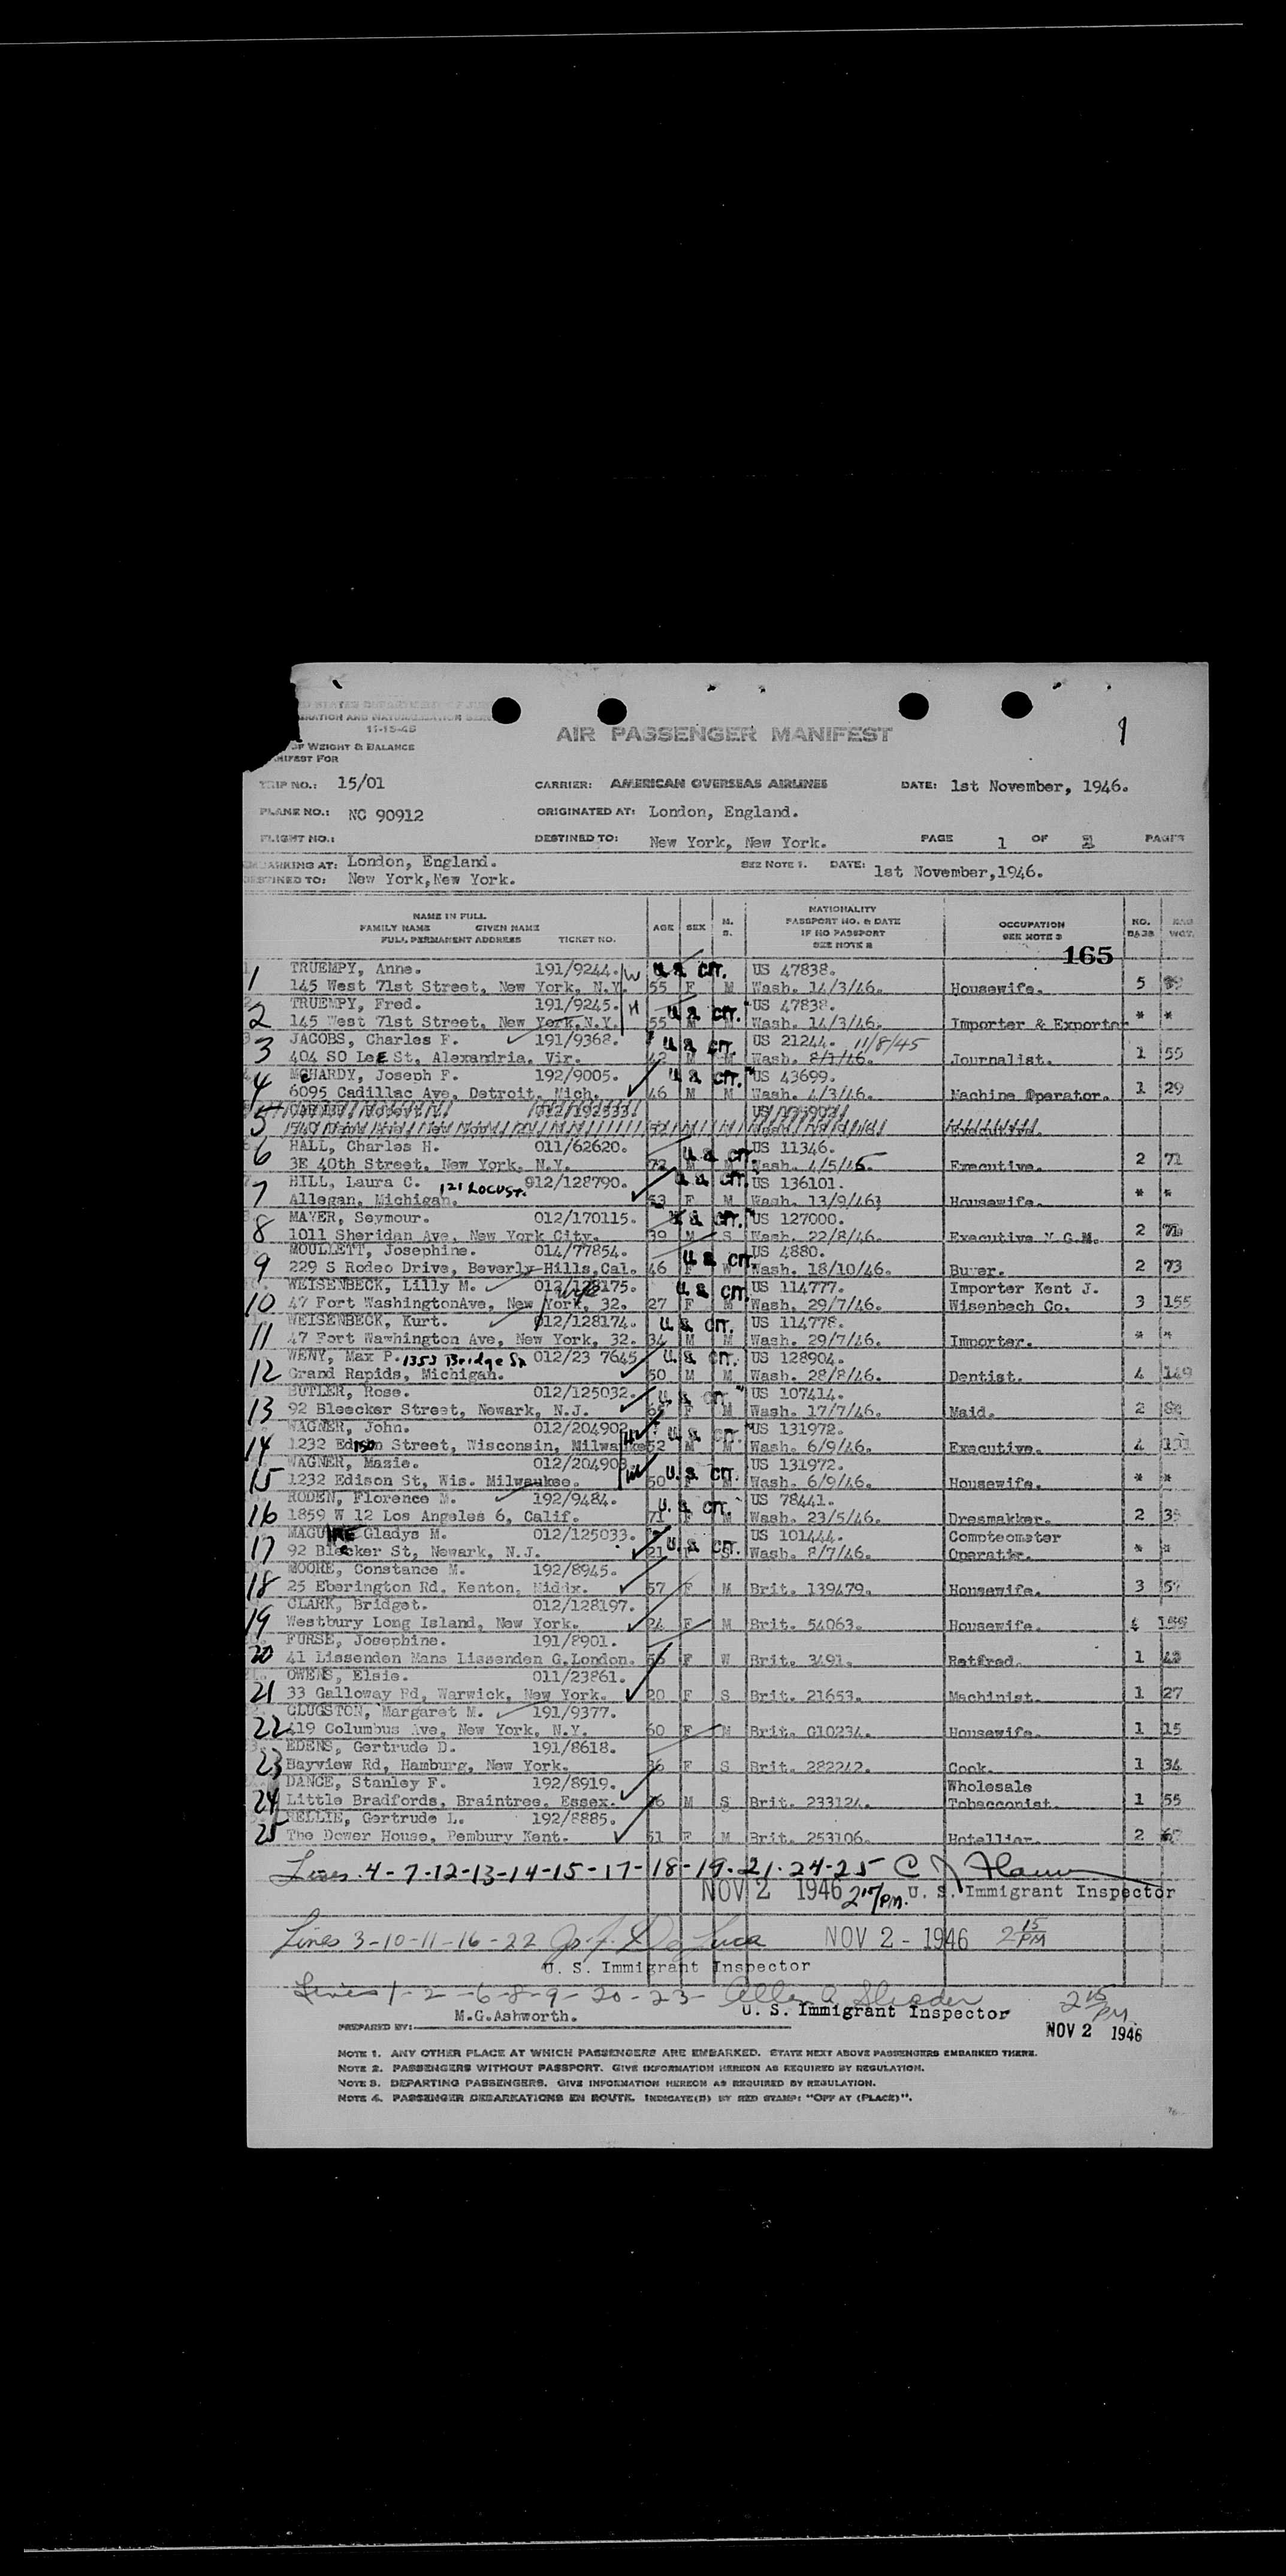 11-15-45
OF WEIGHT & BALANCE
MANIFEST FOR
AIR PASSENGER MANIFEST
TRIP NO.: 15/01 CARRIER: AMERICAN OVERSEAS AIRLINES DATE: 1st November, 1946.
PLANE NO.: NC 90912 ORIGINATED AT: London, England.
FLIGHT NO.: DESTINED TO: New York, New York. PAGE 1 OF 2 PAGES
EMBARKING AT: London, England. SEE NOTE 1. DATE: 1st November,1946.
DESTINED TO: New York,New York.
NAME IN FULL
FAMILY NAME GIVEN NAME
FULL PERMANENT ADDRESS TICKET NO. AGE SEX M. S. NATIONALITY PASSPORT NO. & DATE IF NO PASSPORT SEE NOTE 2 OCCUPATION SEE NOTE 3 NO. BAGS BAG WGT.
165
1 TRUEMPY, Anne. 191/9244. W U.S. CIT. US 47838.
145 West 71st Street, New York, N.Y. 55 F M Wash. 14/3/46. Housewife. 5
2 TRUEMPY, Fred. 191/9245. H U.S. CIT. US 47838.
145 West 71st Street, New York,N.Y. 55 M M Wash. 14/3/46. Importer & Exporter * *
3 JACOBS, Charles F. 191/9368. U.S. CIT. US 21244. 11/8/45
404 SO LEE St, Alexandria, Vir. 42 M M Wash. 8/1/46. Journalist. 1 55
4 McHARDY, Joseph F. 192/9005. U.S. CIT. US 43699.
6095 Cadillac Ave, Detroit, Mich. 46 M M Wash. 4/3/46. Machine Operator. 1 29
5
6 HALL, Charles H. 011/62620. U.S. CIT. US 11346.
3E 40th Street, New York, N.Y. 72 M M Wash. 4/5/45. Executive. 2 71
7 HILL, Laura C. 121 LOCUST. 012/128790. U.S. CIT. US 136101.
Allegan, Michigan. 53 F M Wash. 13/9/46. Housewife. * *
8 MAYER, Seymour. 012/170115. U.S. CIT. US 127000.
1011 Sheridan Ave, New York City. 39 M S Wash. 22/8/46. Executive M.G.M. 2 71
9 MOULLETT, Josephine. 014/77854. U.S. CIT. US 4880.
229 S Rodeo Drive, Beverly Hills,Cal. 46 F W Wash. 18/10/46. Buyer. 2 73
10 WEISENBECK, Lilly M. 012/128175. wife U.S. CIT. US 114777. Importer Kent J.
47 Fort WashingtonAve, New York, 32. 27 F M Wash. 29/7/46. Wisenbech Co. 3 155
11 WEISENBECK, Kurt. 012/128174. U.S. CIT. US 114778.
47 Fort Washington Ave, New York, 32. 34 M M Wash. 29/7/46. Importer. * *
12 WENY, Max P. 1353 Bridge St 012/23 7645 U.S. CIT. US 128904.
Grand Rapids, Michigan. 50 M M Wash. 28/8/46. Dentist. 4 149
13 BUTLER, Rose. 012/125032. U.S. CIT. US 107414.
92 Bleecker Street, Newark, N.J. 65 F M Wash. 17/7/46. Maid. 2
14 WAGNER, John. 012/204902 H U.S. CIT. US 131972.
1232 Edison Street, Wisconsin, Milwaukee 52 M M Wash. 6/9/46. Executive. 4
15 WAGNER, Mazie. 012/204903. W U.S. CIT. US 131972.
1232 Edison St, Wis. Milwaukee. 50 F M Wash. 6/9/46. Housewife. * *
16 RODEN, Florence M. 192/9484. U.S. CIT. US 78441.
1859 W 12 Los Angeles 6, Calif. 71 F M Wash. 23/5/46. Dresmakker. 2
17 MAGUIRE Gladys M. 012/125033. U.S. CIT. US 101444. Compteometer
92 Blecker St, Newark, N.J. 21 F S Wash. 8/7/46. Operatir. * *
18 MOORE, Constance M. 192/8945.
25 Eberington Rd, Kenton, Middx. 57 F M Brit. 139479. Housewife. 3
19 CLARK, Bridget. 012/128197.
Westbury Long Island, New York. 24 F M Brit. 54063. Housewife.
20 FURSE, Josephine. 191/8901.
41 Lissenden Mans Lissenden G.London. F W Brit. 3491. Retired. 1
21 OWENS, Elsie. 011/23861.
33 Galloway Rd, Warwick, New York. 20 F S Brit. 21653. Machinist. 1 27
22 CLUGSTON, Margaret M. 191/9377.
419 Columbus Ave, New York, N.Y. 60 F M Brit. G10234. Housewife. 1 15
23 EDENS, Gertrude D. 191/8618.
Bayview Rd, Hamburg, New York. F S Brit. 282242. Cook. 1 34
24 DANCE, Stanley F. 192/8919. Wholesale
Little Bradfords, Braintree, Essex. M S Brit. 233124. Tobacconist. 1 55
25 BELLIE, Gertrude L. 192/8885.
The Dower House, Pembury Kent. 51 F M Brit. 253106. Hotelliar. 2
Lines 4-7-12-13-14-15-17-18-19-21-24-25
NOV 2 1946 2 15/PM. U. S. Immigrant Inspector
Lines 3-10-11-16-22 De Luca NOV 2 - 1946 2 15 PM
U. S. Immigrant Inspector
Lines 1-2-6-8-9-20-23-
U. S. Immigrant Inspector 2 15 PM
PREPARED BY: M.G.Ashworth. NOV 2 1946
NOTE 1. ANY OTHER PLACE AT WHICH PASSENGERS ARE EMBARKED. STATE NEXT ABOVE PASSENGERS EMBARKED THERE.
NOTE 2. PASSENGERS WITHOUT PASSPORT. GIVE INFORMATION HEREON AS REQUIRED BY REGULATION.
NOTE 3. DEPARTING PASSENGERS. GIVE INFORMATION HEREON AS REQUIRED BY REGULATION.
NOTE 4. PASSENGER DEBARKATIONS EN ROUTE. INDICATE(D) BY RED STAMP: "OFF AT (PLACE)".